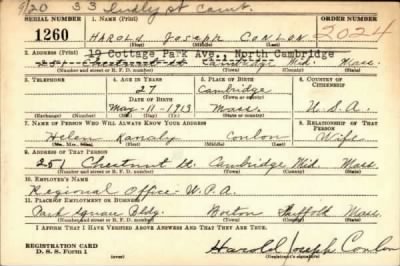 9/20 33 Dudley St Camb.
SERIAL NUMBER 1. NAME (Print) 2024
1260 HAROLD JOSEPH CONLON
(First) (Middle) (Last)
2. ADDRESS (Print) 19 Cottage Park Ave., North Cambridge
251 Chestnut St. Cambridge Mid. Mass.
(Number and street or R. F. D. number) (Town) (County) (State)
3. TELEPHONE 4. AGE IN YEARS 5. PLACE OF BIRTH 6. COUNTRY OF CITIZENSHIP
27 Cambridge
DATE OF BIRTH
May-11-1913 Mass. U.S.A.
(Exchange) (Number) (Mo.) (Day) (Yr.) (State or country)
7. NAME OF PERSON WHO WILL ALWAYS KNOW YOUR ADDRESS 8. RELATIONSHIP OF THAT PERSON
Helen Conlon Wife
(Mr., Mrs., Miss) (First) (Middle) (Last)
9. ADDRESS OF THAT PERSON
251 Chestnut St. Cambridge Mid. Mass.
(Number and street or R. F. D. number) (Town) (County) (State)
10. EMPLOYER'S NAME
Regional Office - W.P.A.
11. PLACE OF EMPLOYMENT OR BUSINESS
Park Square Bldg. Boston Suffolk Mass.
(Number and street or R. F. D. number) (Town) (County) (State)
I AFFIRM THAT I HAVE VERIFIED ABOVE ANSWERS AND THAT THEY ARE TRUE.
REGISTRATION CARD
D. S. S. Form 1 Harold Joseph Conlon
(Registrant's signature)